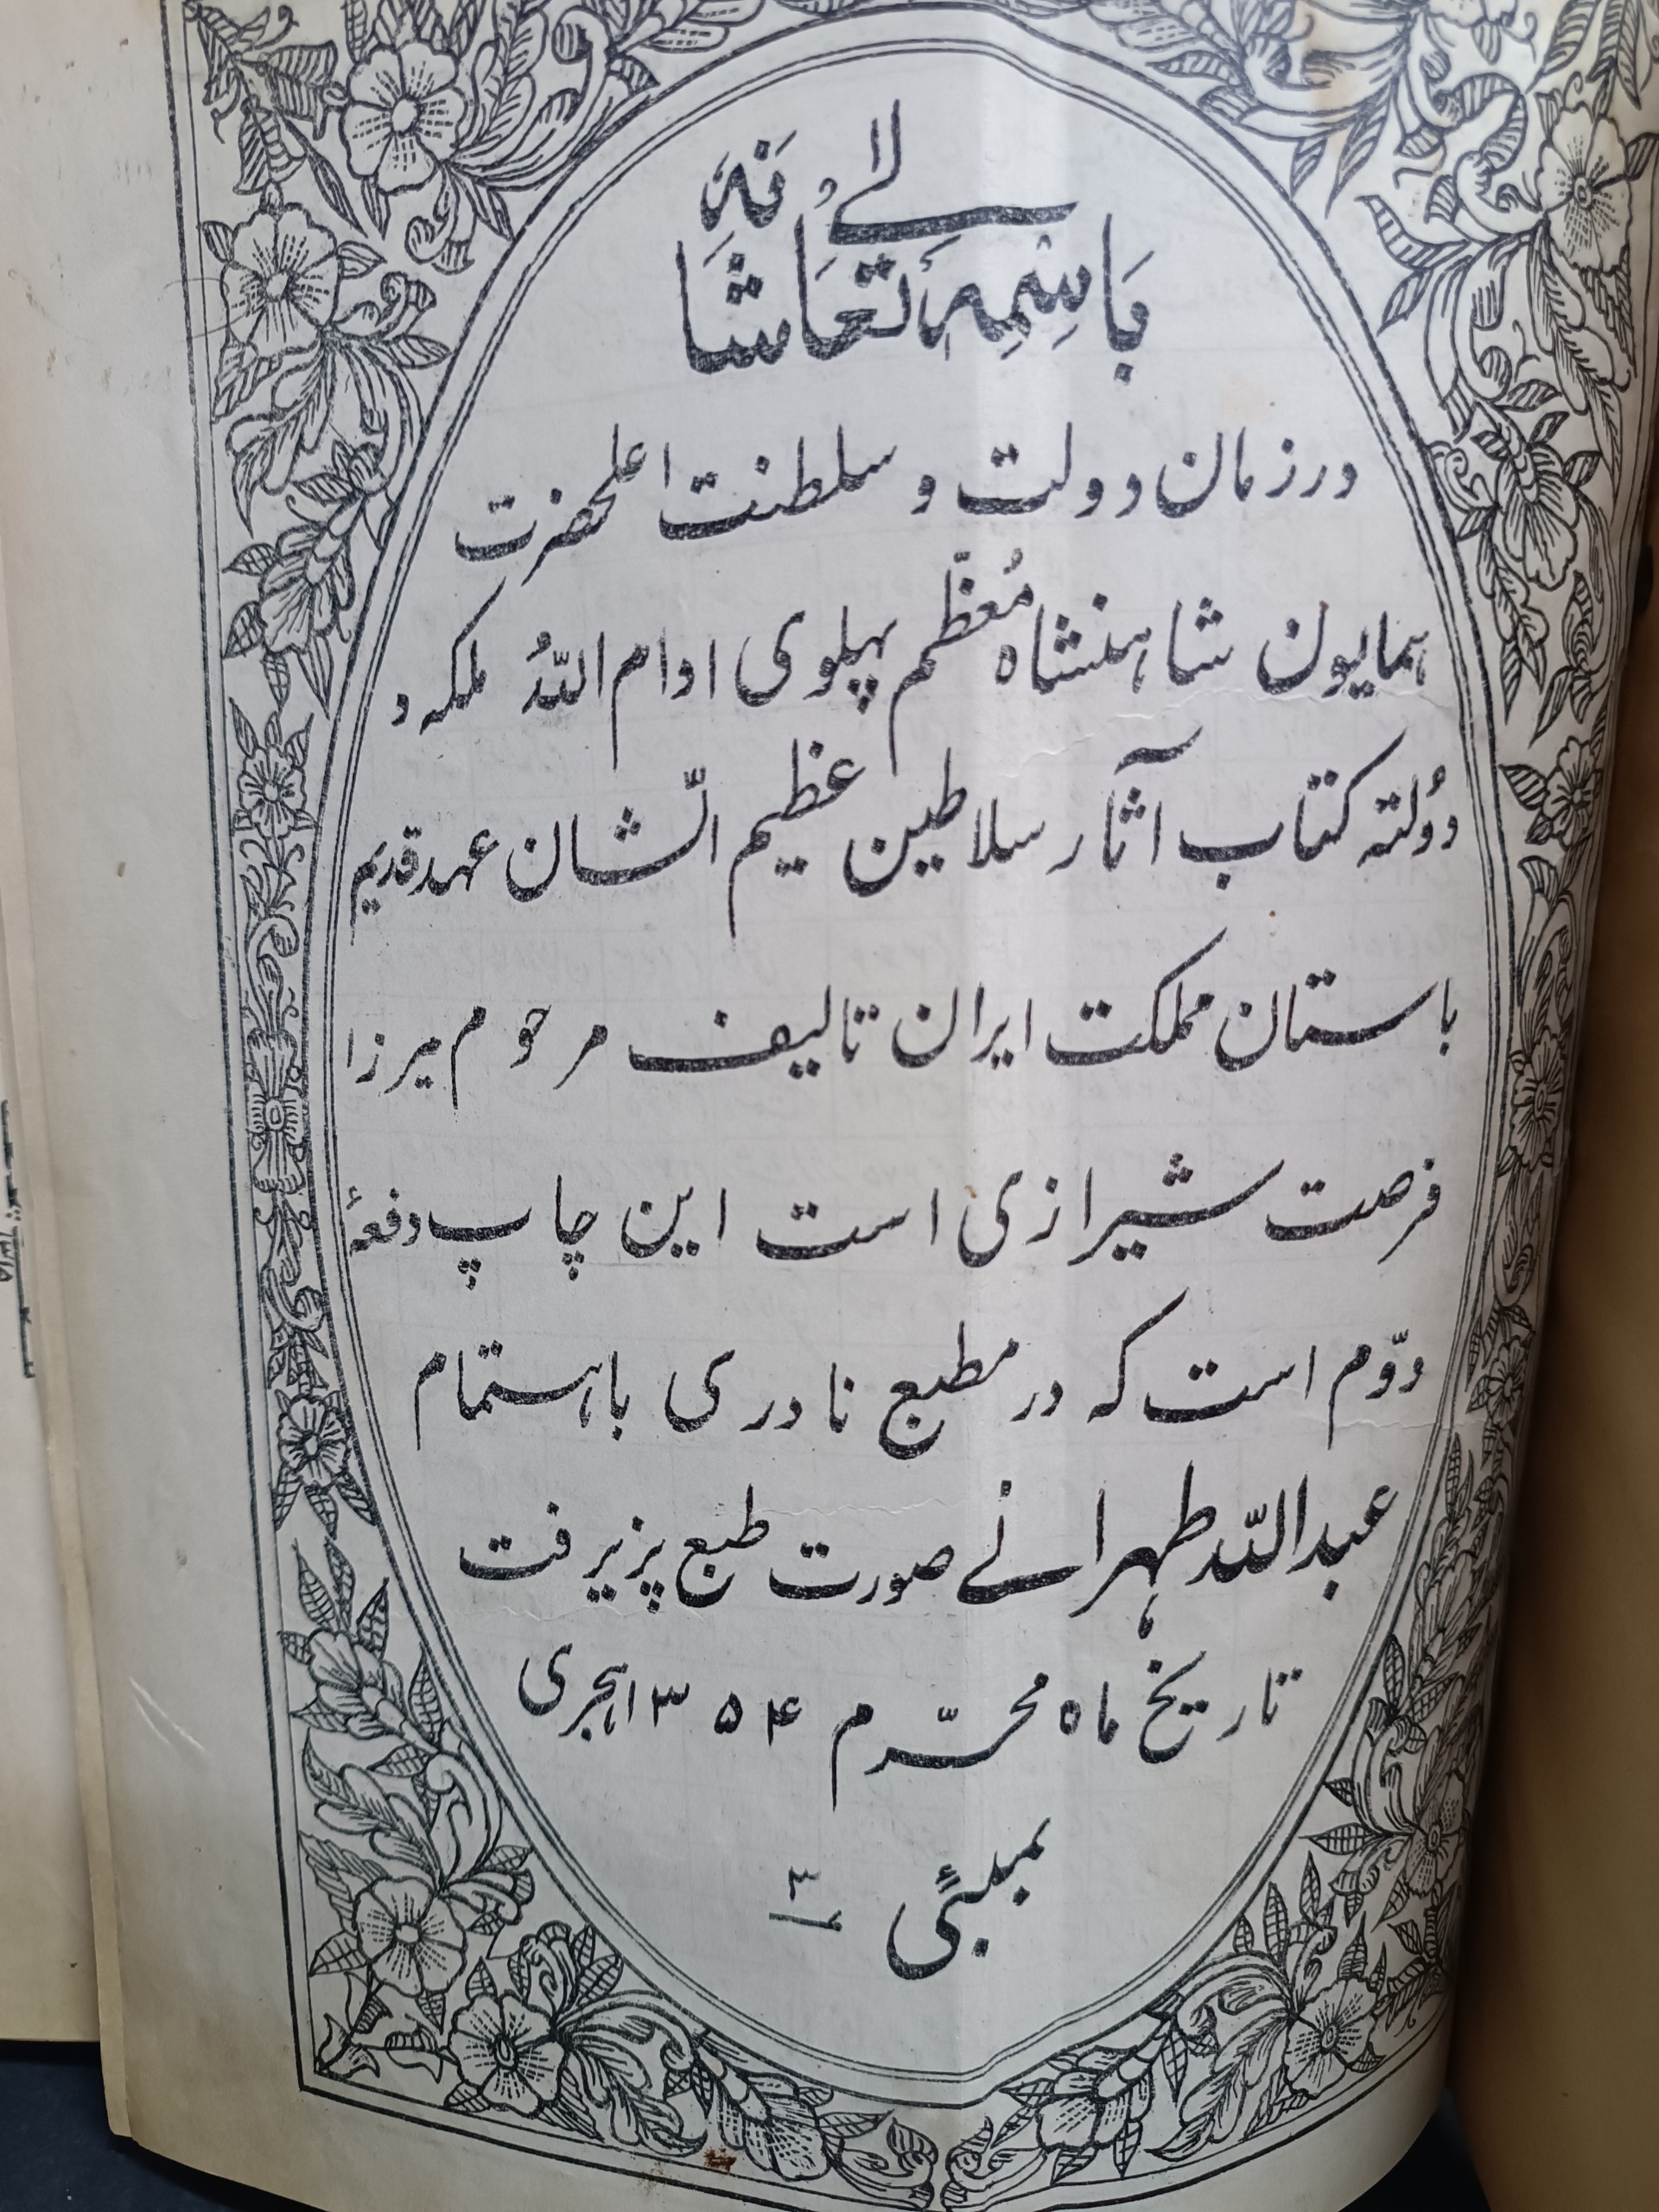 بَاسِمِهٖ تَعَالےٰ شَانُهٗ
در زمان دولت و سلطنت اعلحضرت
همایون شاهنشاه مُعظّم پهلوی ادام اللّهُ ملکه و
دُولته کتاب آثار سلاطین عظیم الشّان عهد قدیم
باستان مملکت ایران تالیف مرحوم میرزا
فرصت شیرازی است این چاپ دفعهٔ
دوّم است که در مطبع نادری باهتمام
عبداللّه طهرانے صورت طبع پزیرفت
تاریخ ماه محرّم ۱۳۵۴ هجری
بمبئی